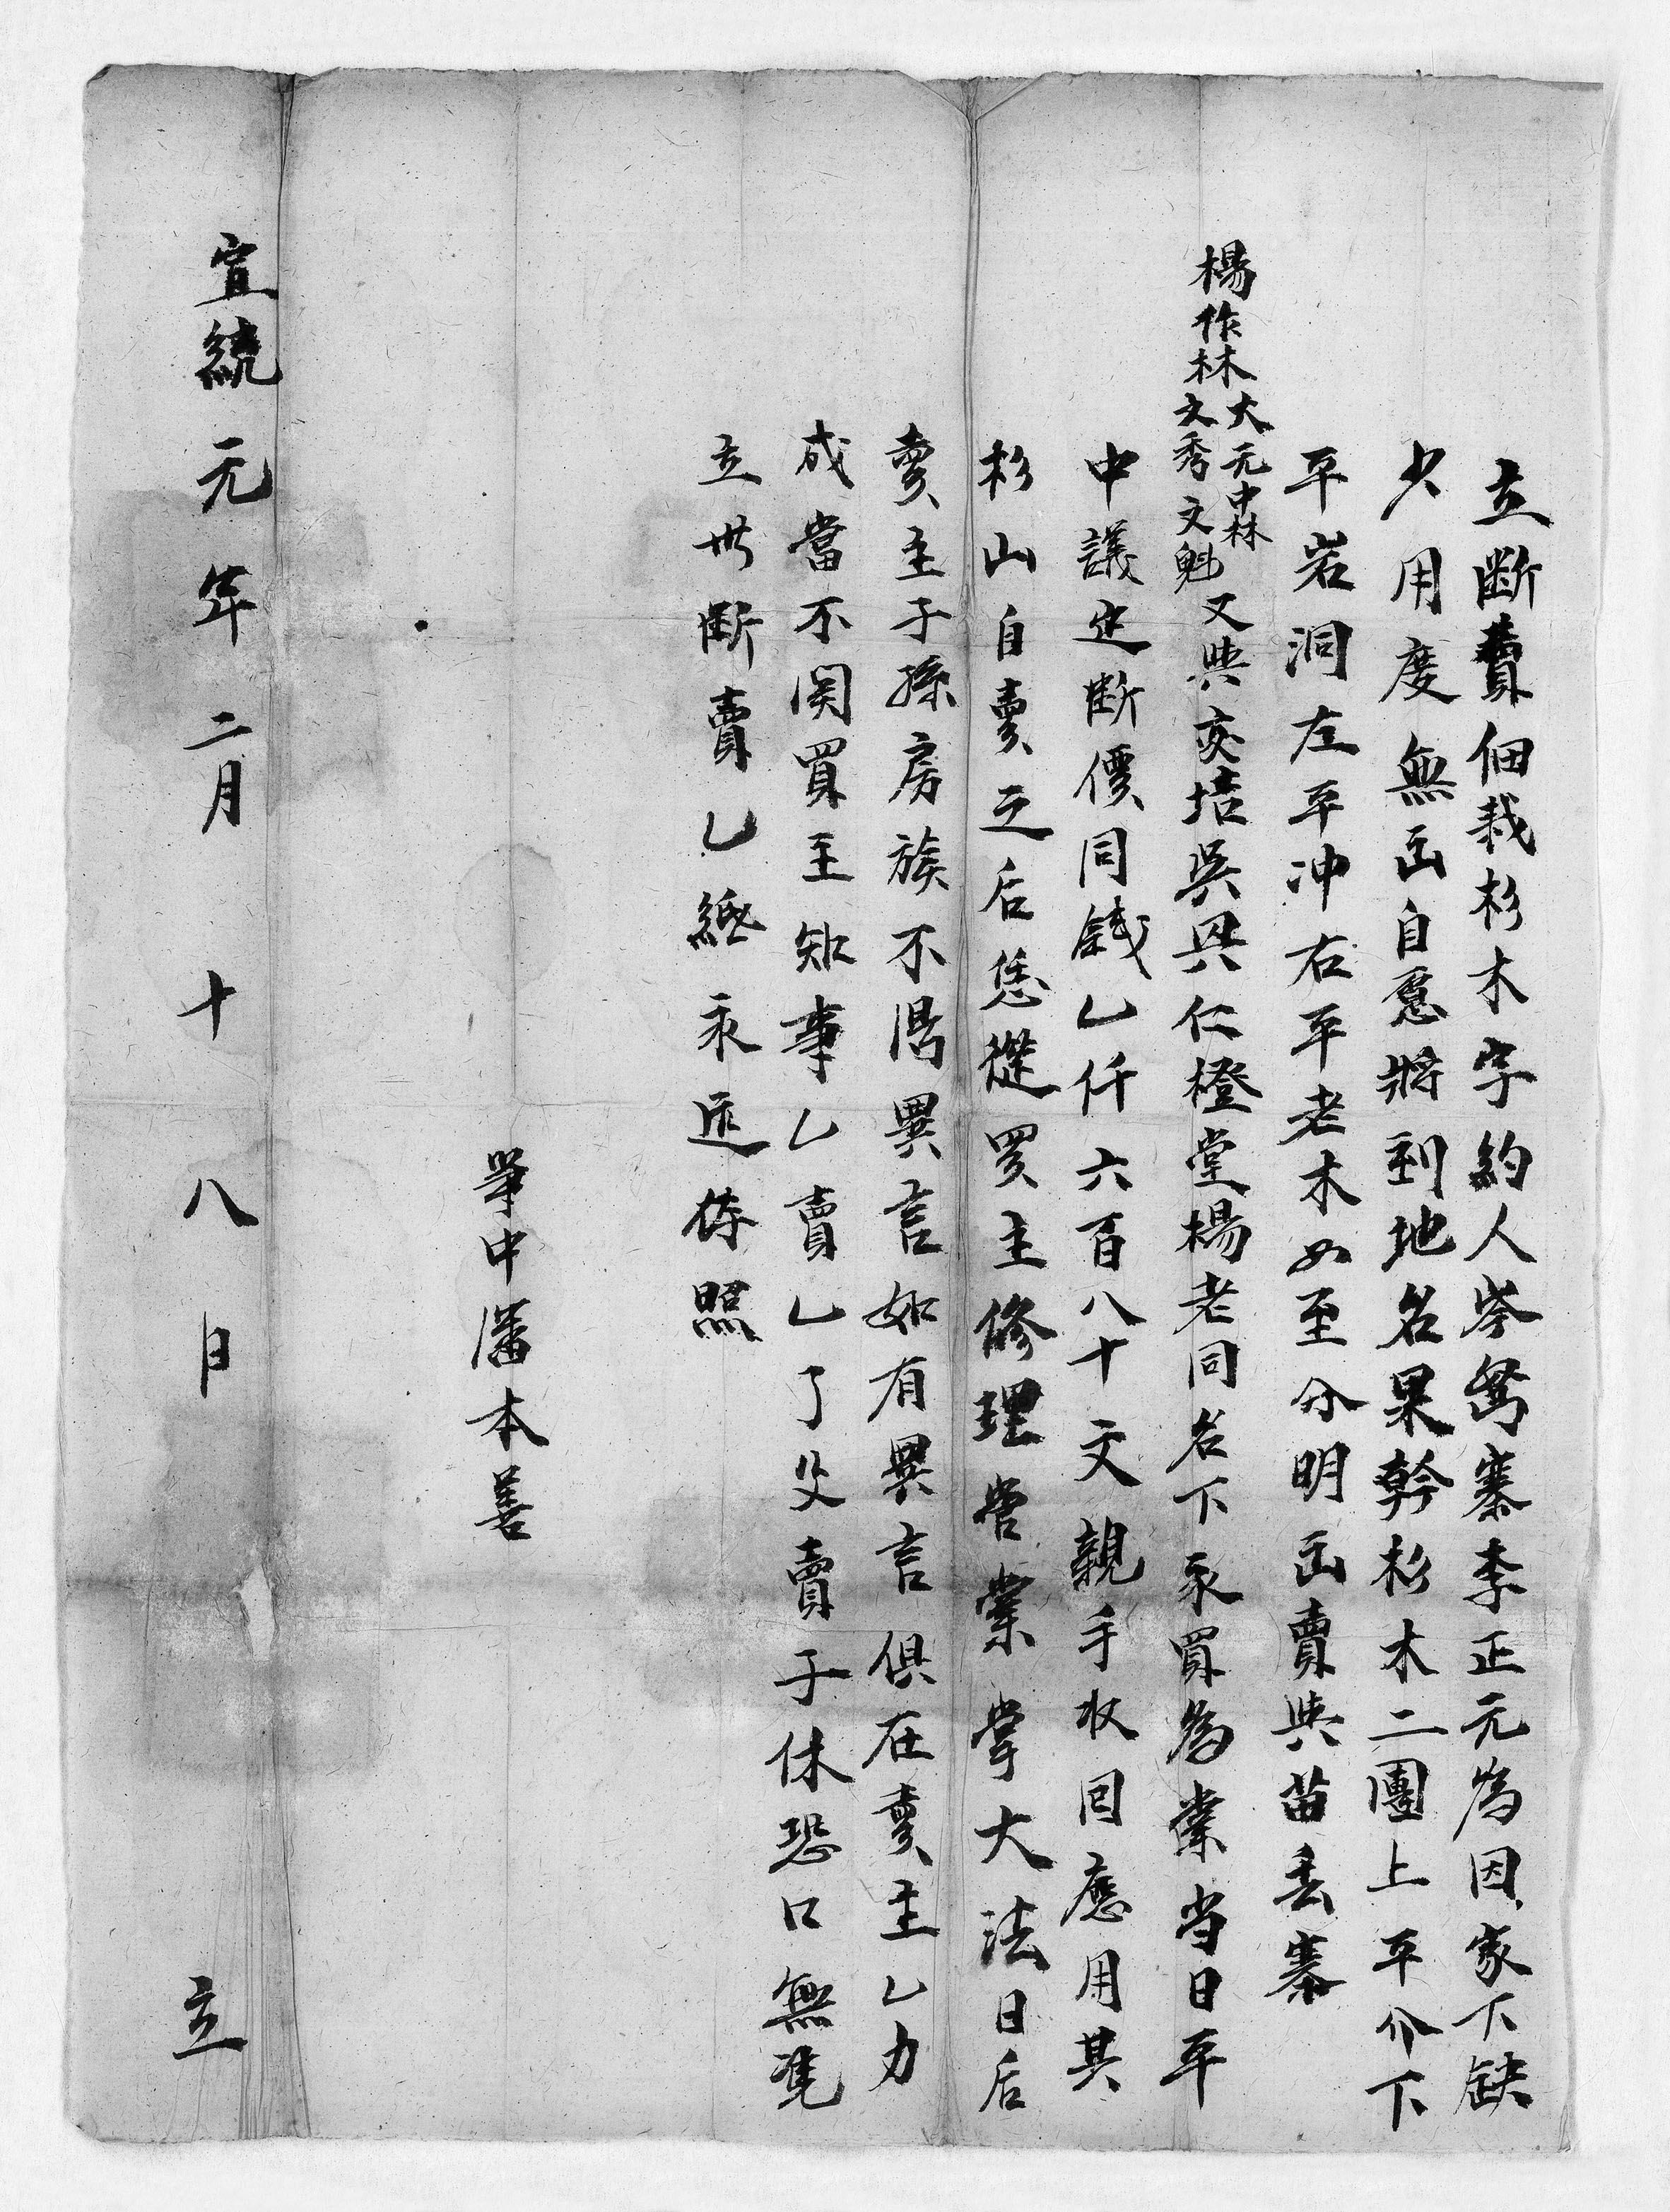 立斷賣佃栽杉木字約人岑努寨李正元為因家下缺
少用度無出自愿將到地名果幹杉木二團上平介下
平岩洞左平冲右平老木四至分明出賣與苗丢寨
楊作林大元中林文秀文魁又與交培吳興仁橙堂楊老同名下永買為業当日平
中議定斷價同錢乙仟六百八十文親手收回應用其
杉山自賣之后恁從買主修理管業掌大法日后
賣主子孫房族不得異言如有異言俱在賣主乙力
成當不関買主知事乙賣乙了父賣子休恐口無凴
立此斷賣乙紙永遠存照
筆中潘本善
宣統元年二月十八日立